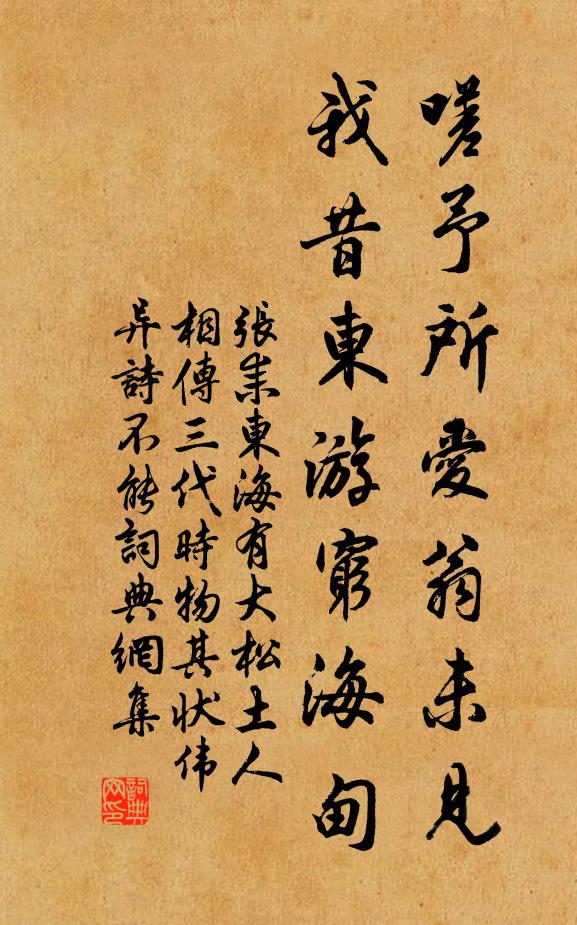 嗟予所愛翁未見
我昔東游窮海甸
張耒東海有大松土人
相傳三代時物其狀伟
异詩不能詞典網集
詞典
网印